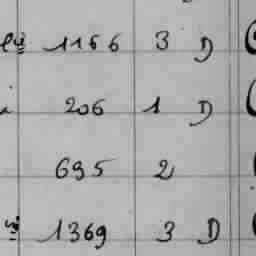 1166 3 D
206 1 D
695 2
1369 3 D